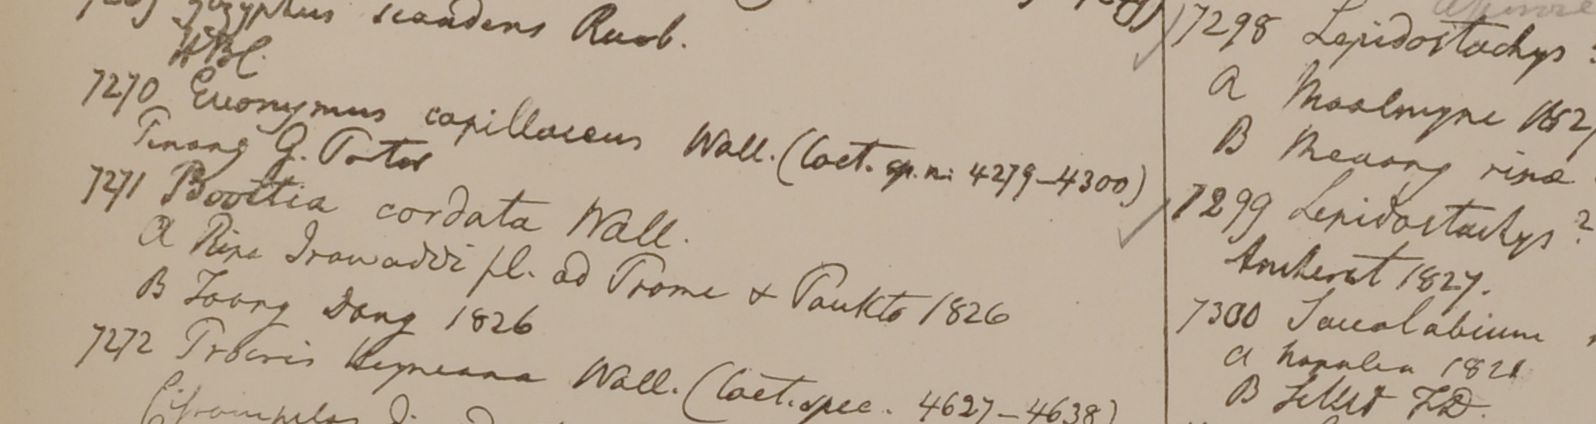 7269 Zizyphus scandens Roxb.
HBC.
7270 Euonymus capillaceus Wall. (Caet. sp. n: 4279–4300)
Pinang G. Porter
7271 Boottia cordata Wall.
a Ripa Irawaddi fl. ad Prome & Paukto 1826
B Toong Dong 1826
7272 Procris Heyneana Wall. (Caet. spec. 4627–4638)
7298 Lepidostachys?
a Moalmyne 1827
B
7299 Lepidostachys?
Amherst 1827.
7300 Saccolabium
a Napalia 1821
B Silhet F.D.